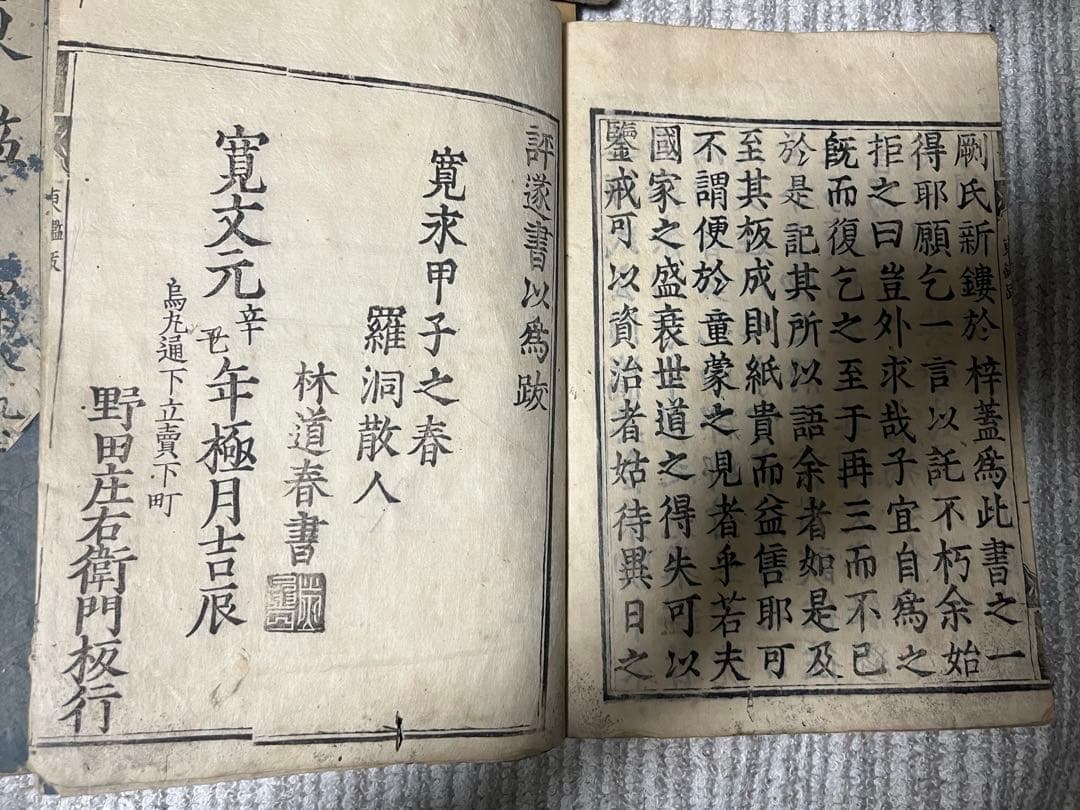 劂氏新鏤於梓蓋為此書之一
得耶願乞一言以託不朽余始
拒之曰豈外求哉子宜自為之
既而復乞之至于再三而不已
於是記其所以語余者如是及
至其板成則紙貴而益售耶可
不謂便於童蒙之見者乎若夫
國家之盛衰世道之得失可以
鑒戒可以資治者姑待異日之
評遂書以為跋
寛永甲子之春
羅洞散人
林道春書
寛文元辛丑年極月吉辰
烏丸通下立賣下町
野田庄右衛門板行
東鑑跋